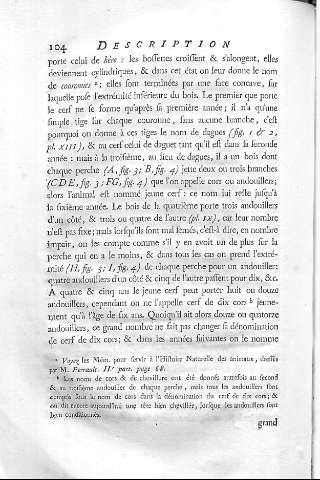 104 DESCRIPTION
porte celui de hère : les bossettes croissent & s'alongent, elles
deviennent cylindriques, & dans cet état on leur donne le nom
de couronnes ª; elles sont terminées par une face concave, sur
laquelle pose l'extrémité inférieure du bois. Le premier que porte
le cerf ne se forme qu'après sa première année; il n'a qu'une
simple tige sur chaque couronne, sans aucune branche, c'est
pourquoi on donne à ces tiges le nom de dagues (fig. 1 & 2,
pl. XIII), & au cerf celui de daguet tant qu'il est dans sa seconde
année : mais à la troisième, au lieu de dagues, il a un bois dont
chaque perche (A, fig. 3; B, fig. 4) jette deux ou trois branches
(CDE, fig. 3; FG, fig. 4) que l'on appelle cors ou andouillers;
alors l'animal est nommé jeune cerf : ce nom lui reste jusqu'à
la sixième année. Le bois de la quatrième porte trois andouillers
d'un côté, & trois ou quatre de l'autre (pl. IX), car leur nombre
n'est pas fixe; mais lorsqu'ils sont mal semés, c'est-à dire, en nombre
impair, on les compte comme s'il y en avoit un de plus sur la
perche qui en a le moins, & dans tous les cas on prend l'extré-
mité (H, fig. 3; I, fig. 4) de chaque perche pour un andouiller;
quatre andouillers d'un côté & cinq de l'autre passent pour dix, &c.
A quatre & cinq ans le jeune cerf peut porter huit ou douze
andouillers, cependant on ne l'appelle cerf de dix cors ᵇ jeune-
ment qu'à l'âge de six ans. Quoiqu'il ait alors douze ou quatorze
andouillers, ce grand nombre ne fait pas changer sa dénomination
de cerf de dix cors; & dans les années suivantes on le nomme
ª Voyez les Mém. pour servir à l'Histoire Naturelle des animaux, dressés
par M. Perrault. IIᵉ part. page 68.
ᵇ Les noms de cors & de chevillure ont été donnés autrefois au second
& au troisième andouiller de chaque perche, mais tous les andouillers sont
compris sous le nom de cors dans la dénomination du cerf de dix cors; &
on dit encore aujourd'hui une tête bien chevillée, lorsque les andouillers sont
bien conditionnés.
grand